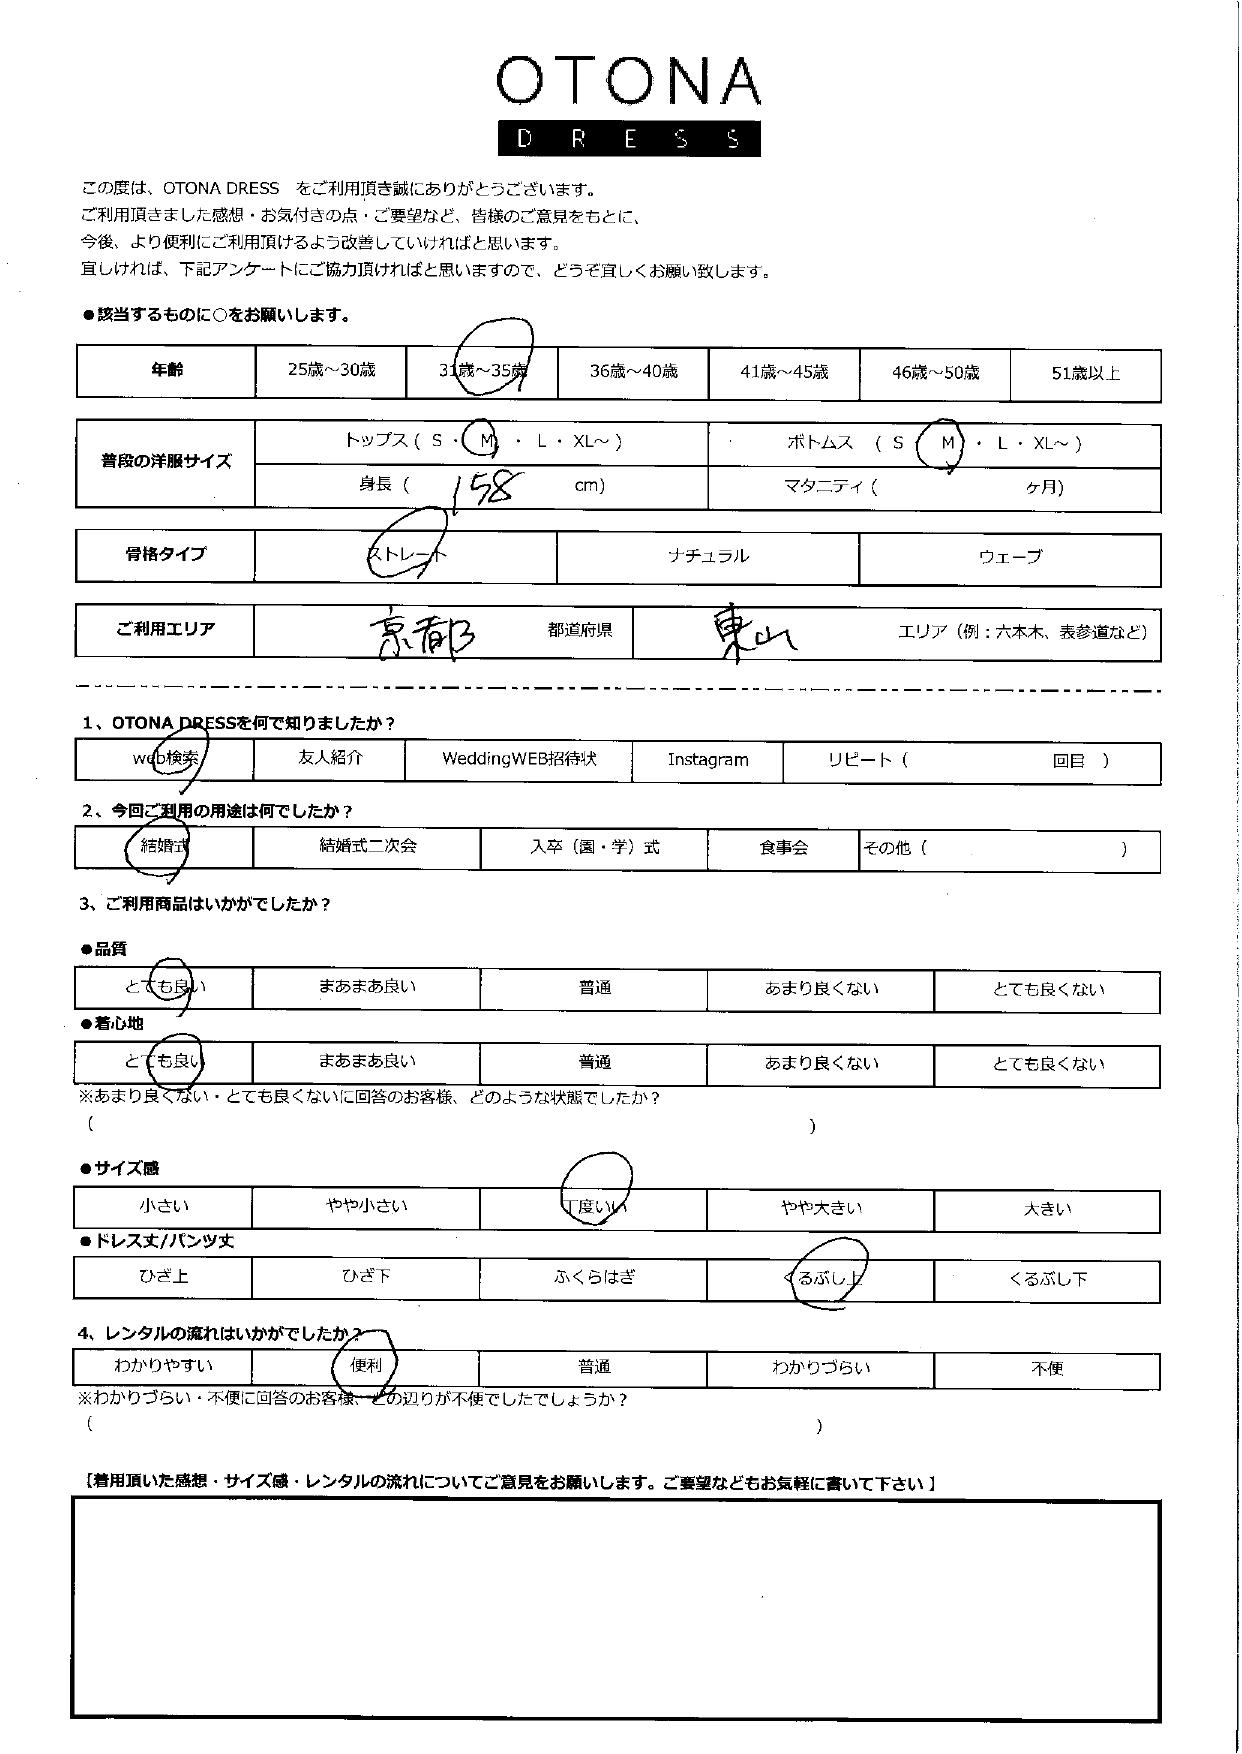 OTONA
DRESS
この度は、OTONA DRESS　をご利用頂き誠にありがとうございます。
ご利用頂きました感想・お気付きの点・ご要望など、皆様のご意見をもとに、
今後、より便利にご利用頂けるよう改善していければと思います。
宜しければ、下記アンケートにご協力頂ければと思いますので、どうぞ宜しくお願い致します。
●該当するものに○をお願いします。
年齢 25歳～30歳 31歳～35歳 36歳～40歳 41歳～45歳 46歳～50歳 51歳以上
普段の洋服サイズ トップス ( S ・ M ・ L ・ XL～ ) ボトムス ( S M ・ L ・ XL～ )
身長 ( 158 cm) マタニティ ( ヶ月)
骨格タイプ ストレート ナチュラル ウェーブ
ご利用エリア 京都 都道府県 東山 エリア（例：六本木、表参道など）
1、OTONA DRESSを何で知りましたか？
web検索 友人紹介 WeddingWEB招待状 Instagram リピート ( 回目 )
2、今回ご利用の用途は何でしたか？
結婚式 結婚式二次会 入卒（園・学）式 食事会 その他 ( )
3、ご利用商品はいかがでしたか？
●品質
とても良い まあまあ良い 普通 あまり良くない とても良くない
●着心地
とても良い まあまあ良い 普通 あまり良くない とても良くない
※あまり良くない・とても良くないに回答のお客様、どのような状態でしたか？
( )
●サイズ感
小さい やや小さい 丁度いい やや大きい 大きい
●ドレス丈/パンツ丈
ひざ上 ひざ下 ふくらはぎ くるぶし上 くるぶし下
4、レンタルの流れはいかがでしたか？
わかりやすい 便利 普通 わかりづらい 不便
※わかりづらい・不便に回答のお客様、どの辺りが不便でしたでしょうか？
( )
【着用頂いた感想・サイズ感・レンタルの流れについてご意見をお願いします。ご要望などもお気軽に書いて下さい】